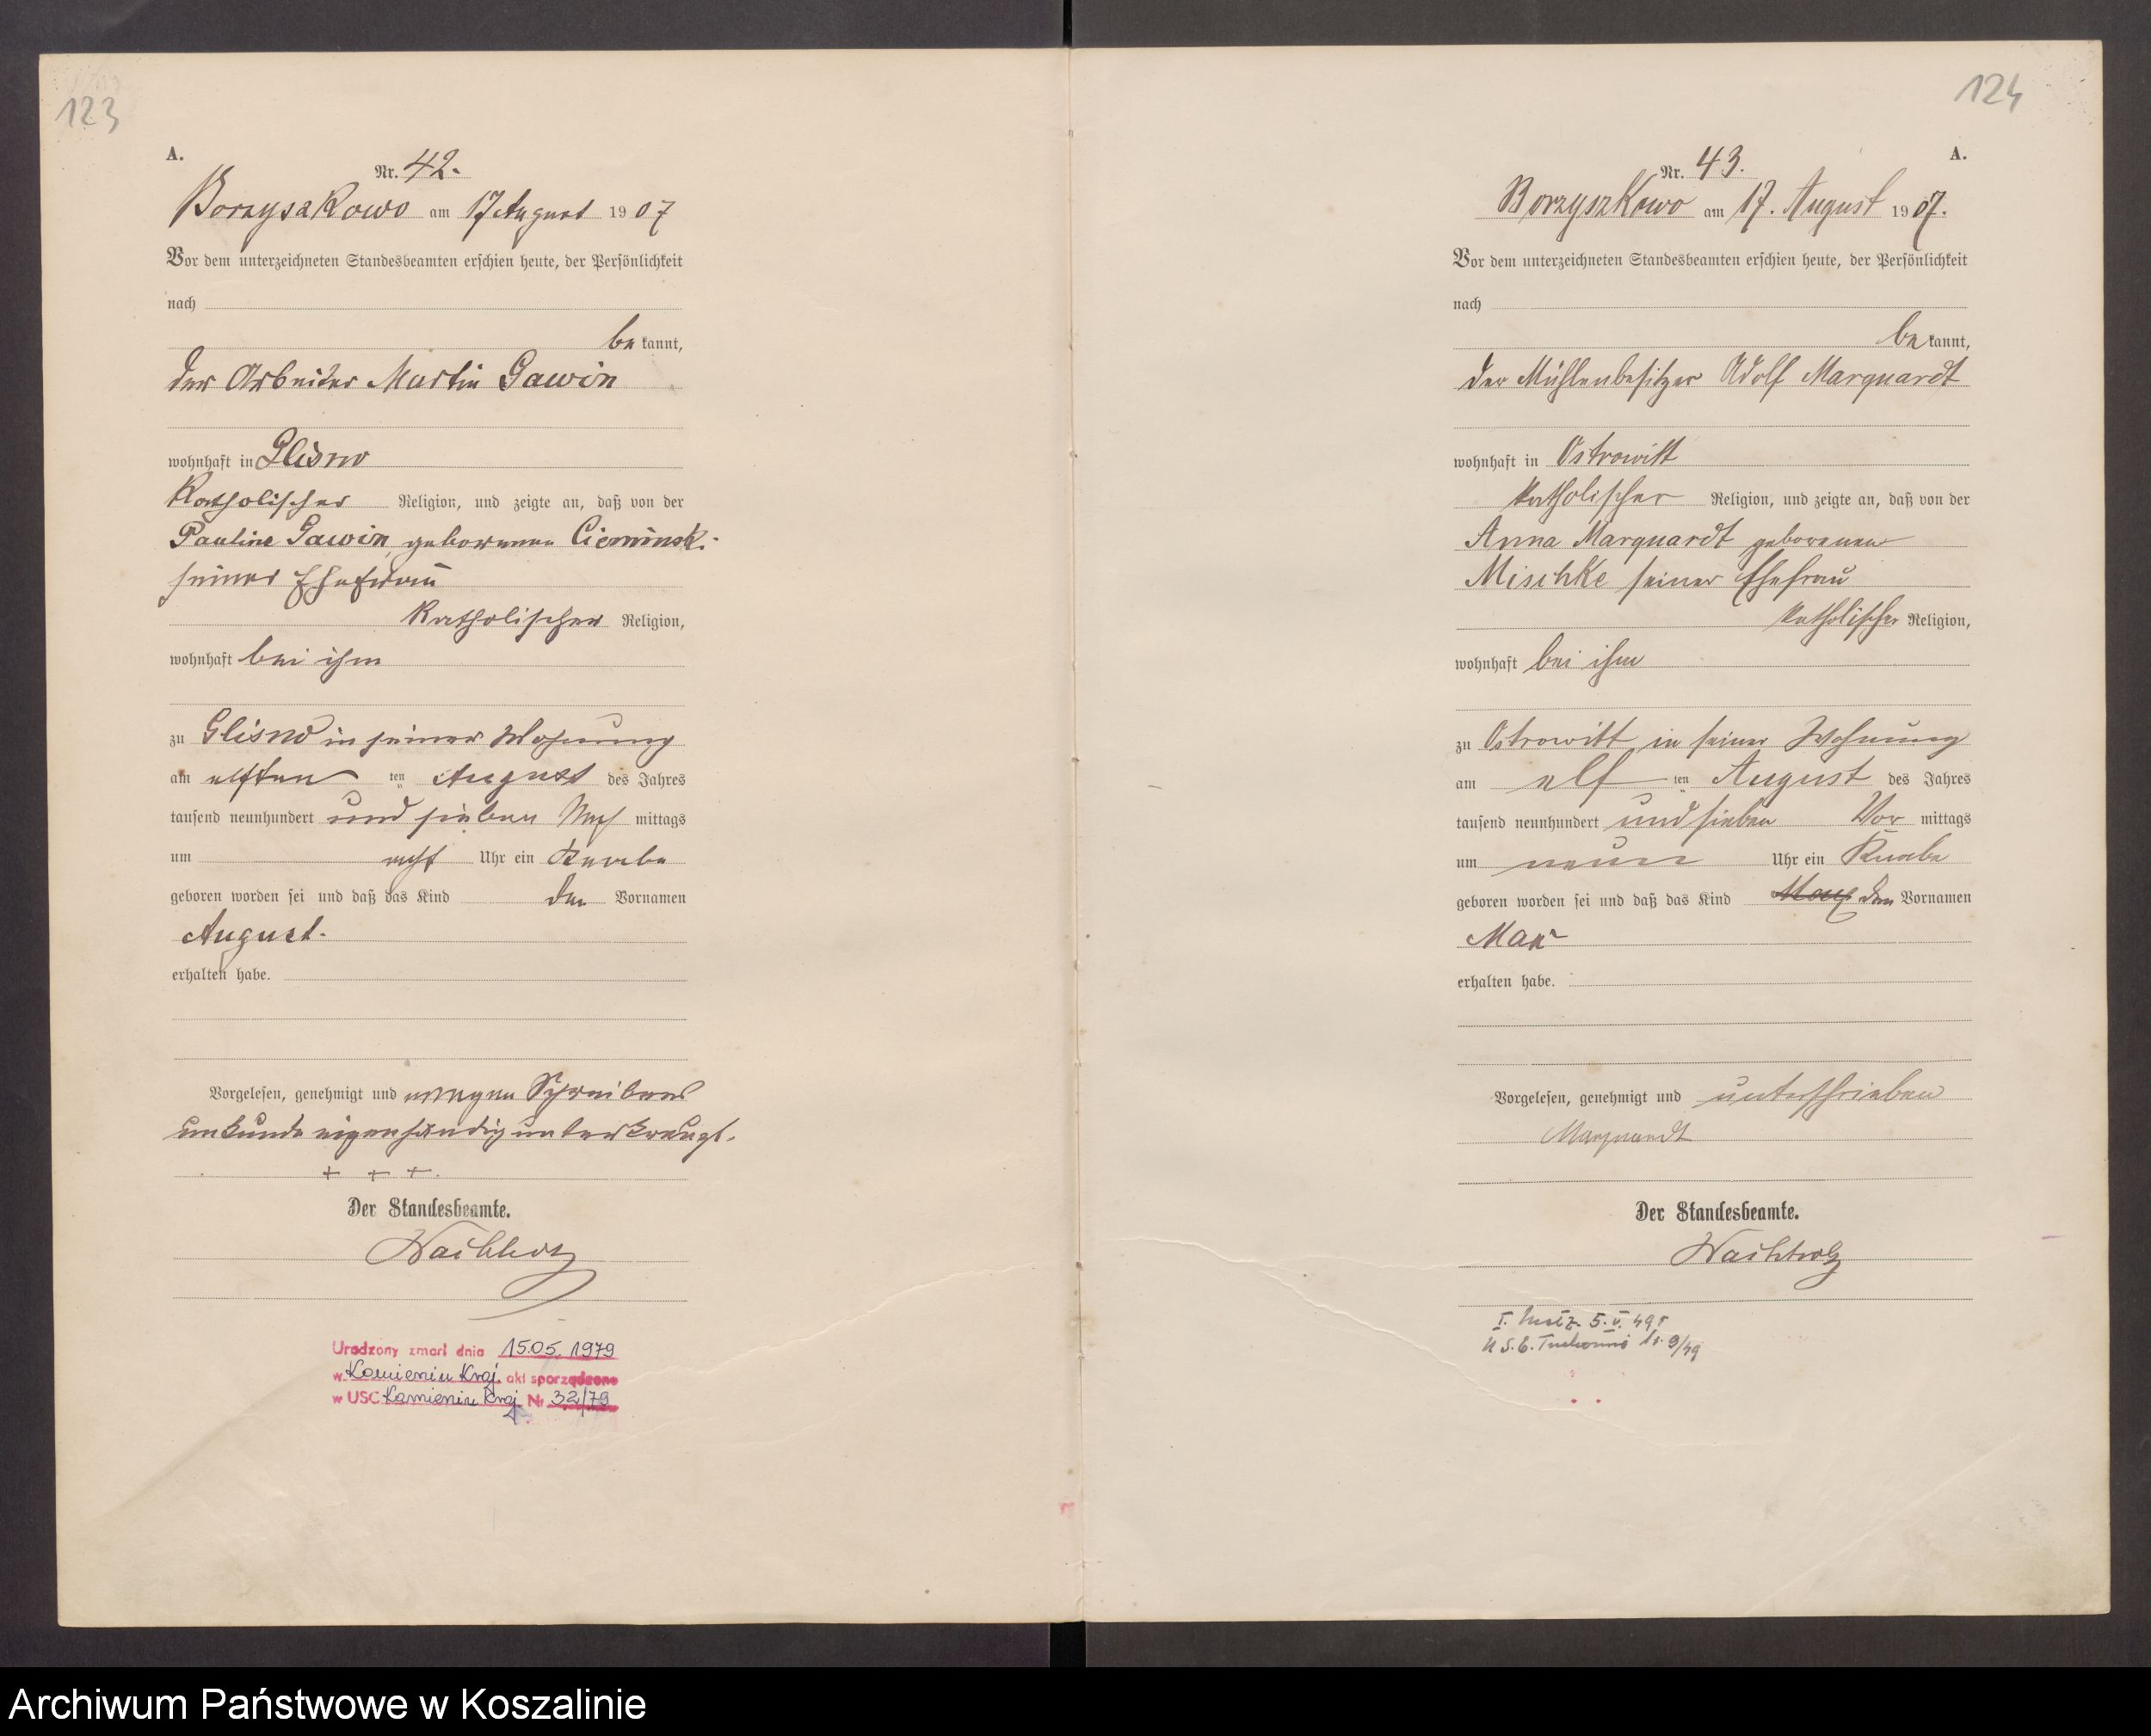 123
A.
Nr. 42.
Borzyszkowo am 17 August 1907
Vor dem unterzeichneten Standesbeamten erschien heute, der Persönlichkeit
nach
bekannt,
der Arbeiter Martin Gawin
wohnhaft in Glisno
Katholischer Religion, und zeigte an, daß von der
Pauline Gawin, geborenen Cieminski
seiner Ehefrau
Katholischer Religion,
wohnhaft bei ihm
zu Glisno in seiner Wohnung
am elften ten August des Jahres
tausend neunhundert und sieben Nach mittags
um acht Uhr ein Knabe
geboren worden sei und daß das Kind den Vornamen
August.
erhalten habe.
Vorgelesen, genehmigt und wegen Schreibens
unkunde eigenhändig unterkreuzt.
+ + +.
Der Standesbeamte.
Wachholz
Urodzony zmarł dnia 15.05.1979
w Kamieniu Kraj. akt sporządzono
w USC Kamieniu Kraj. Nr 32/79
124
A.
Nr. 43.
Borzyszkowo am 17. August 1907.
Vor dem unterzeichneten Standesbeamten erschien heute, der Persönlichkeit
nach
bekannt,
der Mühlenbesitzer Adolf Marquardt
wohnhaft in Ostrowitt
katholischer Religion, und zeigte an, daß von der
Anna Marquardt geborenen
Mischke seiner Ehefrau
katholischer Religion,
wohnhaft bei ihm
zu Ostrowitt in seiner Wohnung
am elf ten August des Jahres
tausend neunhundert und sieben Vor mittags
um neun Uhr ein Knabe
geboren worden sei und daß das Kind den Vornamen
Max
erhalten habe.
Vorgelesen, genehmigt und unterschrieben
Marquardt
Der Standesbeamte.
Wachholz
5.V.49 r
9/49
Archiwum Państwowe w Koszalinie